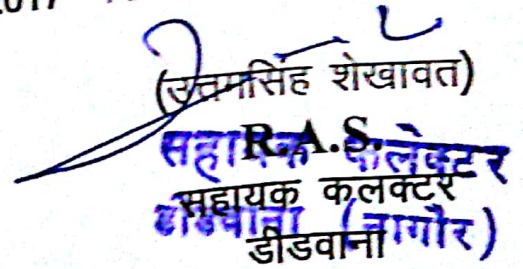 2017
(उत्तमसिंह शेखावत)
R.A.S.
सहायक कलेक्टर
सहायक कलक्टर
डीडवाना (नागौर)
डीडवाना